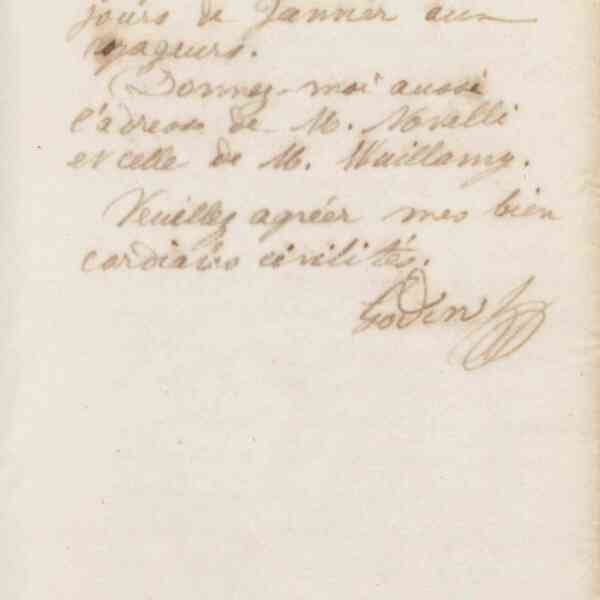 jours de Janvier aux
gageurs.
Donnez-moi aussi
l'adresse de M. Novelli
et celle de M. Vuillamy.
Veuillez agréer mes bien
cordiales civilités.
Godin